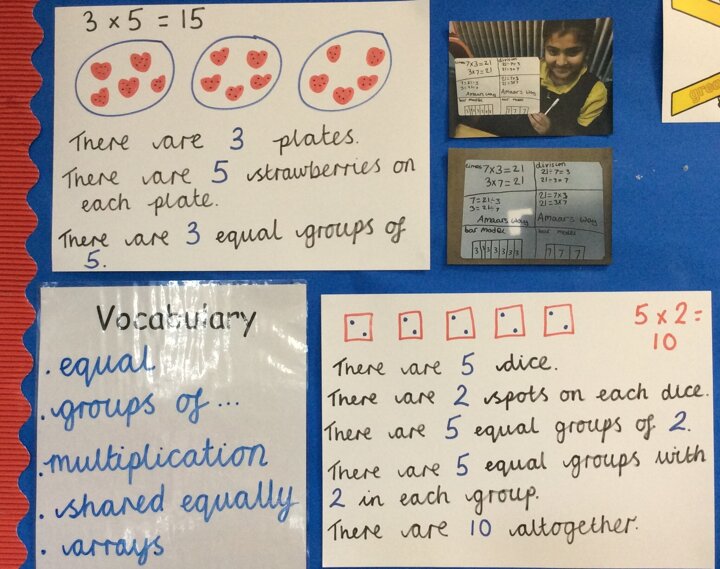 3 × 5 = 15
There are 3 plates.
There are 5 strawberries on
each plate.
There are 3 equal groups of
5.
times 7×3=21
3×7=21
division
21÷7=3
21÷3=7
7=21÷3
3=21÷7
Amaar's way
21=7×3
21=3×7
Amaar's way
bar model
3 3 3 3 3 3 3
bar model
7 7 7
Vocabulary
. equal
. groups of ...
. multiplication
. shared equally
. arrays
5 × 2 =
10
There are 5 dice.
There are 2 spots on each dice.
There are 5 equal groups of 2.
There are 5 equal groups with
2 in each group.
There are 10 altogether.